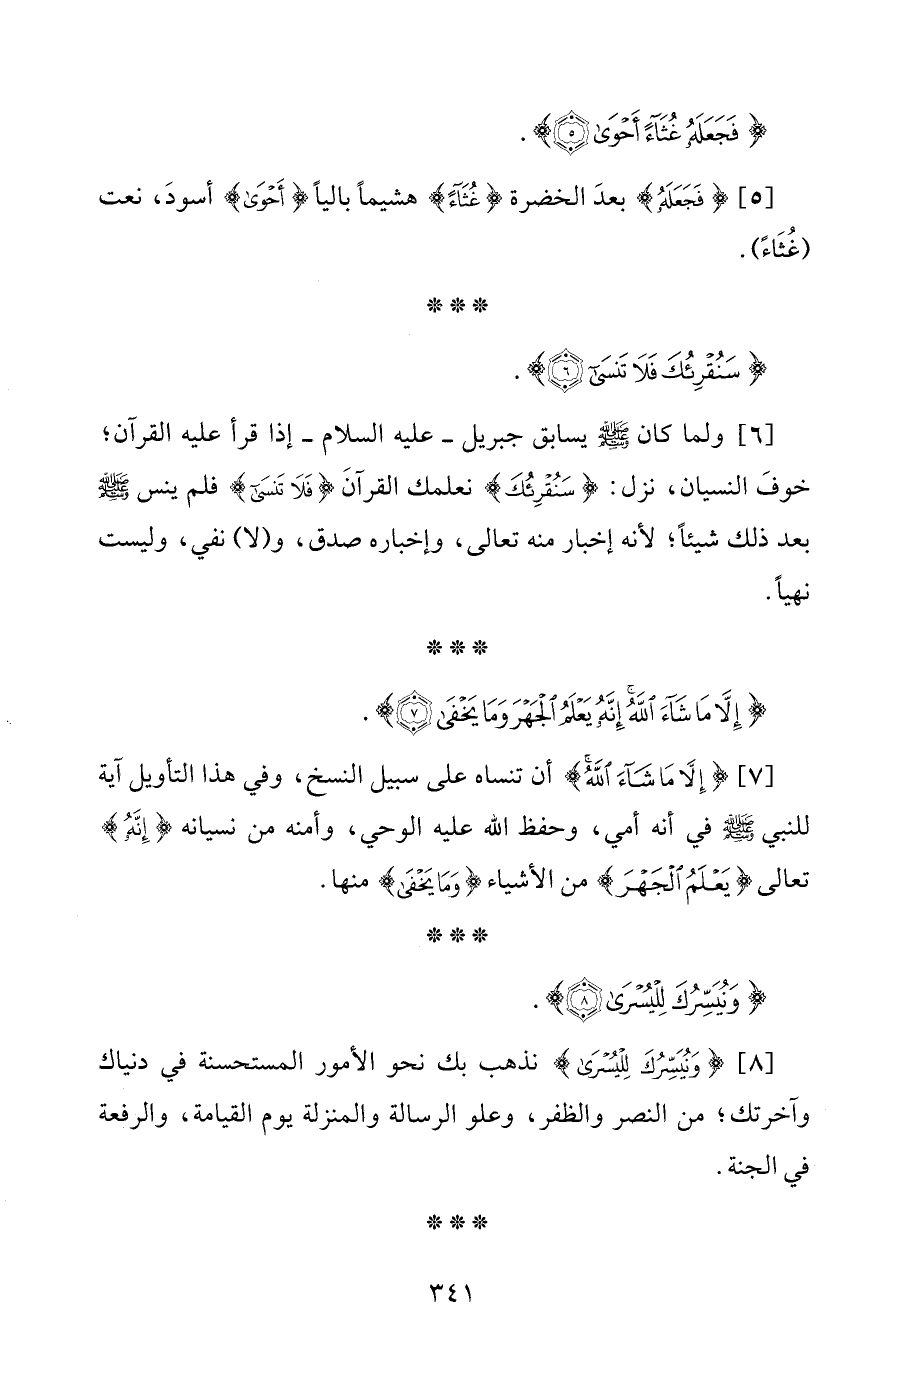 ﴿ فَجَعَلَهُۥ غُثَآءً أَحْوَىٰ ٥﴾ .
[٥] ﴿ فَجَعَلَهُۥ ﴾ بعدَ الخضرة ﴿ غُثَآءً ﴾ هشيماً بالياً ﴿ أَحْوَىٰ ﴾ أسودَ، نعت
(غُثَاءً) .
* * *
﴿ سَنُقْرِئُكَ فَلَا تَنسَىٰٓ ٦﴾ .
[٦] ولما كان ﷺ يسابق جبريل ـ عليه السلام ـ إذا قرأ عليه القرآن؛
خوفَ النسيان، نزل: ﴿ سَنُقْرِئُكَ ﴾ نعلمك القرآنَ ﴿ فَلَا تَنسَىٰٓ ﴾ فلم ينس ﷺ
بعد ذلك شيئاً؛ لأنه إخبار منه تعالى، وإخباره صدق، و(لا) نفي، وليست
نهياً.
* * *
﴿ إِلَّا مَا شَآءَ ٱللَّهُ ۚ إِنَّهُۥ يَعْلَمُ ٱلْجَهْرَ وَمَا يَخْفَىٰ ٧﴾ .
[٧] ﴿ إِلَّا مَا شَآءَ ٱللَّهُ ۚ ﴾ أن تنساه على سبيل النسخ، وفي هذا التأويل آية
للنبي ﷺ في أنه أمي، وحفظ الله عليه الوحي، وأمنه من نسيانه ﴿ إِنَّهُۥ ﴾
تعالى ﴿ يَعْلَمُ ٱلْجَهْرَ ﴾ من الأشياء ﴿ وَمَا يَخْفَىٰ ﴾ منها.
* * *
﴿ وَنُيَسِّرُكَ لِلْيُسْرَىٰ ٨﴾ .
[٨] ﴿ وَنُيَسِّرُكَ لِلْيُسْرَىٰ ﴾ نذهب بك نحو الأمور المستحسنة في دنياك
وآخرتك؛ من النصر والظفر، وعلو الرسالة والمنزلة يوم القيامة، والرفعة
في الجنة .
* * *
٣٤١